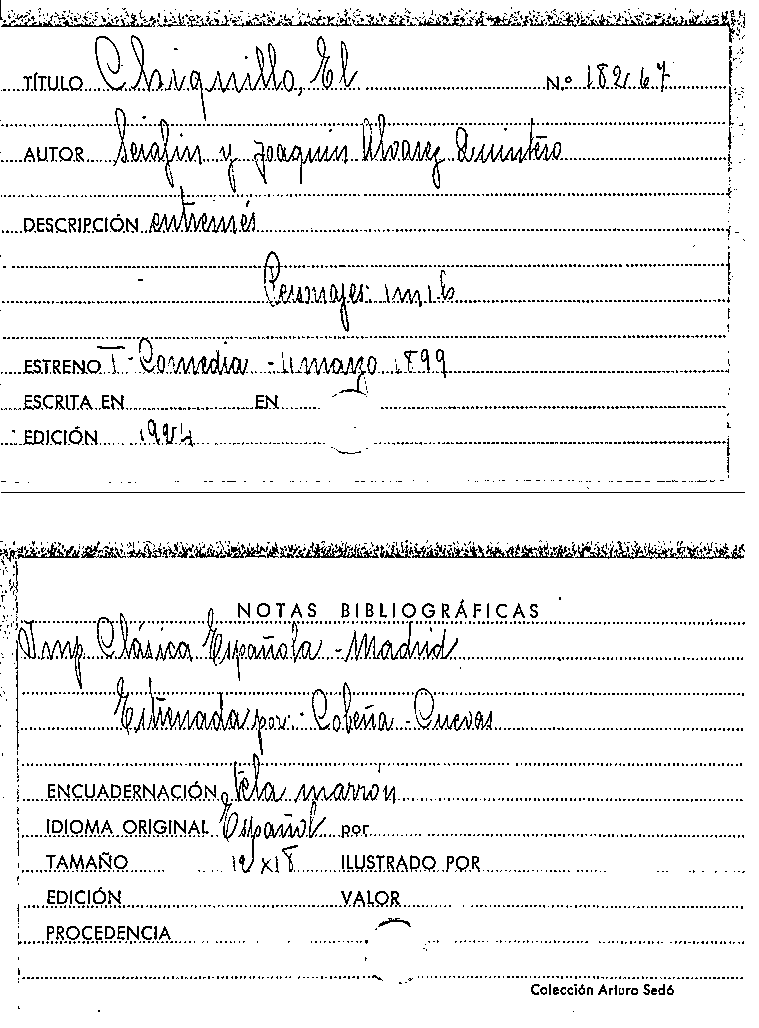 TÍTULO Chiquillo, El Nº 182167
AUTOR Serafin y Joaquin Alvarez Quintero
DESCRIPCIÓN entremés
Personajes: 1m 1h
ESTRENO T- Comedia - 11 marzo 1899
ESCRITA EN EN
EDICIÓN 1924
NOTAS BIBLIOGRÁFICAS
Imp Clásica Española - Madrid
Estrenada por: - Cobeña - Cuevas
ENCUADERNACIÓN tela marrón
IDIOMA ORIGINAL Español por
TAMAÑO 12x18 ILUSTRADO POR
EDICIÓN VALOR
PROCEDENCIA
Colección Arturo Sedó